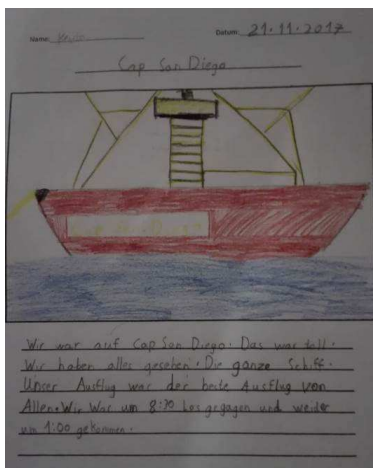 Name:
Datum: 21.11.2017
Cap San Diego
Wir war auf Cap San Diego. Das war toll.
Wir haben alles gesehen. Die ganze Schiff.
Unser Ausflug war der beste Ausflug von
Allen. Wir War um 8:30 los gegagen und weider
um 1:00 gekommen.